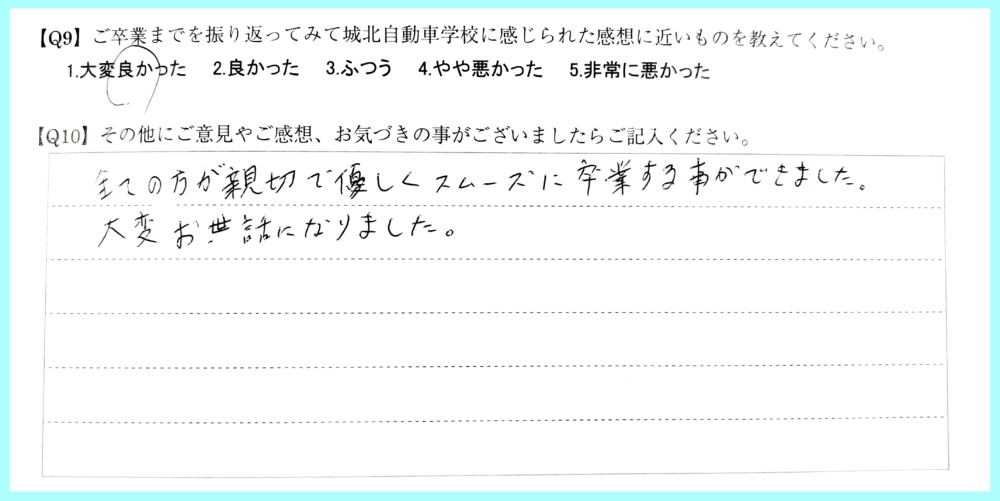 【Q9】ご卒業までを振り返ってみて城北自動車学校に感じられた感想に近いものを教えてください。
1.大変良かった 2.良かった 3.ふつう 4.やや悪かった 5.非常に悪かった
【Q10】その他にご意見やご感想、お気づきの事がございましたらご記入ください。
全ての方が親切で優しくスムーズに卒業する事ができました。
大変お世話になりました。